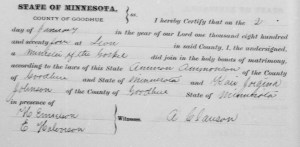 STATE OF MINNESOTA,
COUNTY OF GOODHUE ss. I hereby Certify that on the 2
day of January in the year of our Lord one thousand eight hundred
and seventy four at Leon in said County I, the undersigned,
a Minister of the Gospel did join in the holy bonds of matrimony,
according to the laws of this State Amund Amundson of the County
of Goodhue and State of Minnesota and
Johnson of the County of Goodhue State of Minnesota
in presence of
Witness. A Clauson